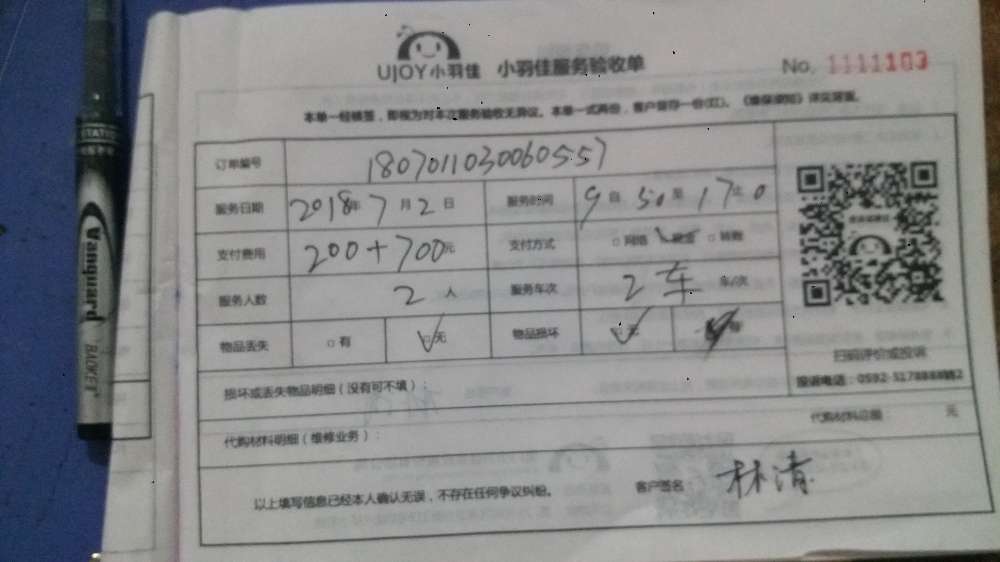 UJOY小羽佳 小羽佳服务验收单 No. 1111103
本单一经核签，即视为对本次服务验收无异议。本单一式两份，客户留存一份(红)。《维保须知》详见背面。
订单编号 180701103006055​7
服务日期 2018年7月2日 服务时间 9自50至17止0
支付费用 200+700元 支付方式 □网络 ☑现金 □转账
服务人数 2人 服务车次 2车 车/次
物品丢失 □有 ☑无 物品损坏 ☑无 有
扫码评价或投诉
投诉电话：0592-5178888转2
损坏或丢失物品明细（没有可不填）：
代购材料明细（维修业务）： 代购材料总额： 元
以上填写信息已经本人确认无误，不存在任何争议纠纷。 客户签名 林清
Vanguard
BAOKE